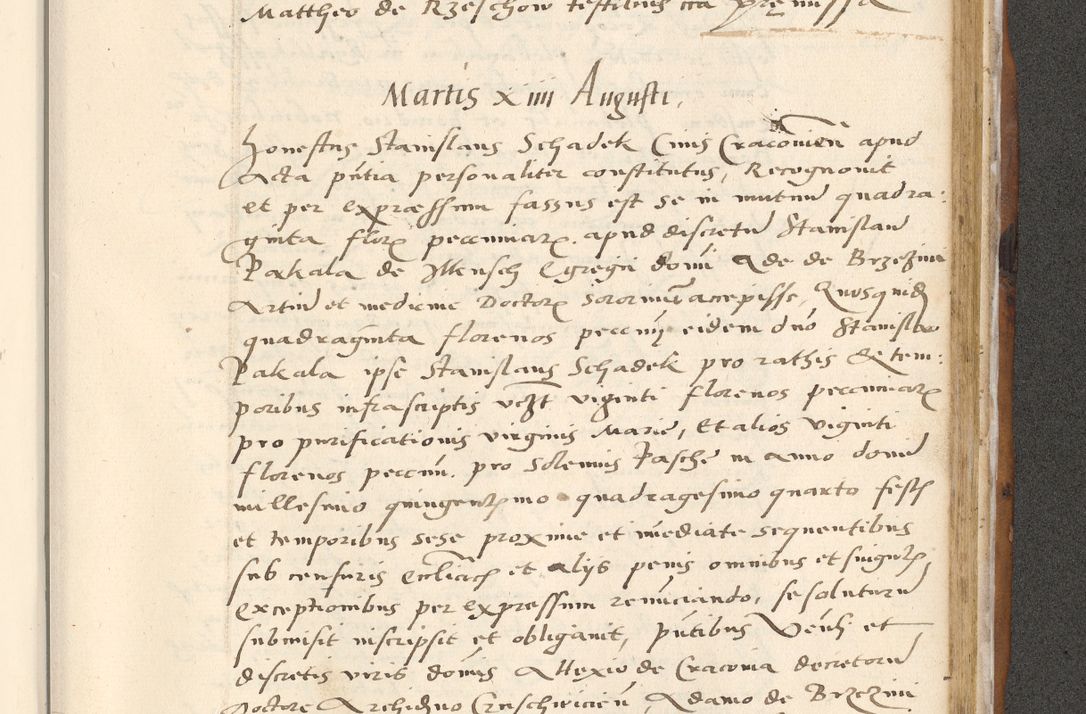 Mattheo de Rzeschow testibus cca premissa
Martis xiiii Augusti,
Honestus Stanislaus Schadek Civis Cracovien apud
Acta pntia personaliter constitutus, Recognovit
et per expressum fassus est se in mutuum quadra:
ginta flor peccuniar. apud discretu Stanislau
Pakala de Ilkusch Egregii domi Ade de Brzezini
Artiu et medicine Doctor Sororinu accepisse, Quosquid
quadraginta florenos peccun eidem dno Stanislao
Pakala ipse Stanislaus Schadek pro rathis & tem:
poribus infrascriptis vczt viginti florenos peccuniar
pro purificationis virginis Marie, Et alios viginti
florenos peccun. pro Solemnis Pasche in anno domi
millesimo quingentmo quadragesimo quarto fest
et temporibus sese proxime et imediate sequentibus
sub censuris ecclicis et alijs penis omnibus et singulr
exceptionibus per expressum renunciando, se soluturu
submisit inscripsit et obligavit, pntibus Venli et
discretis viris domis Allexio de Cracovia decretoru
Doctore Archidno Adamo de Brzezini